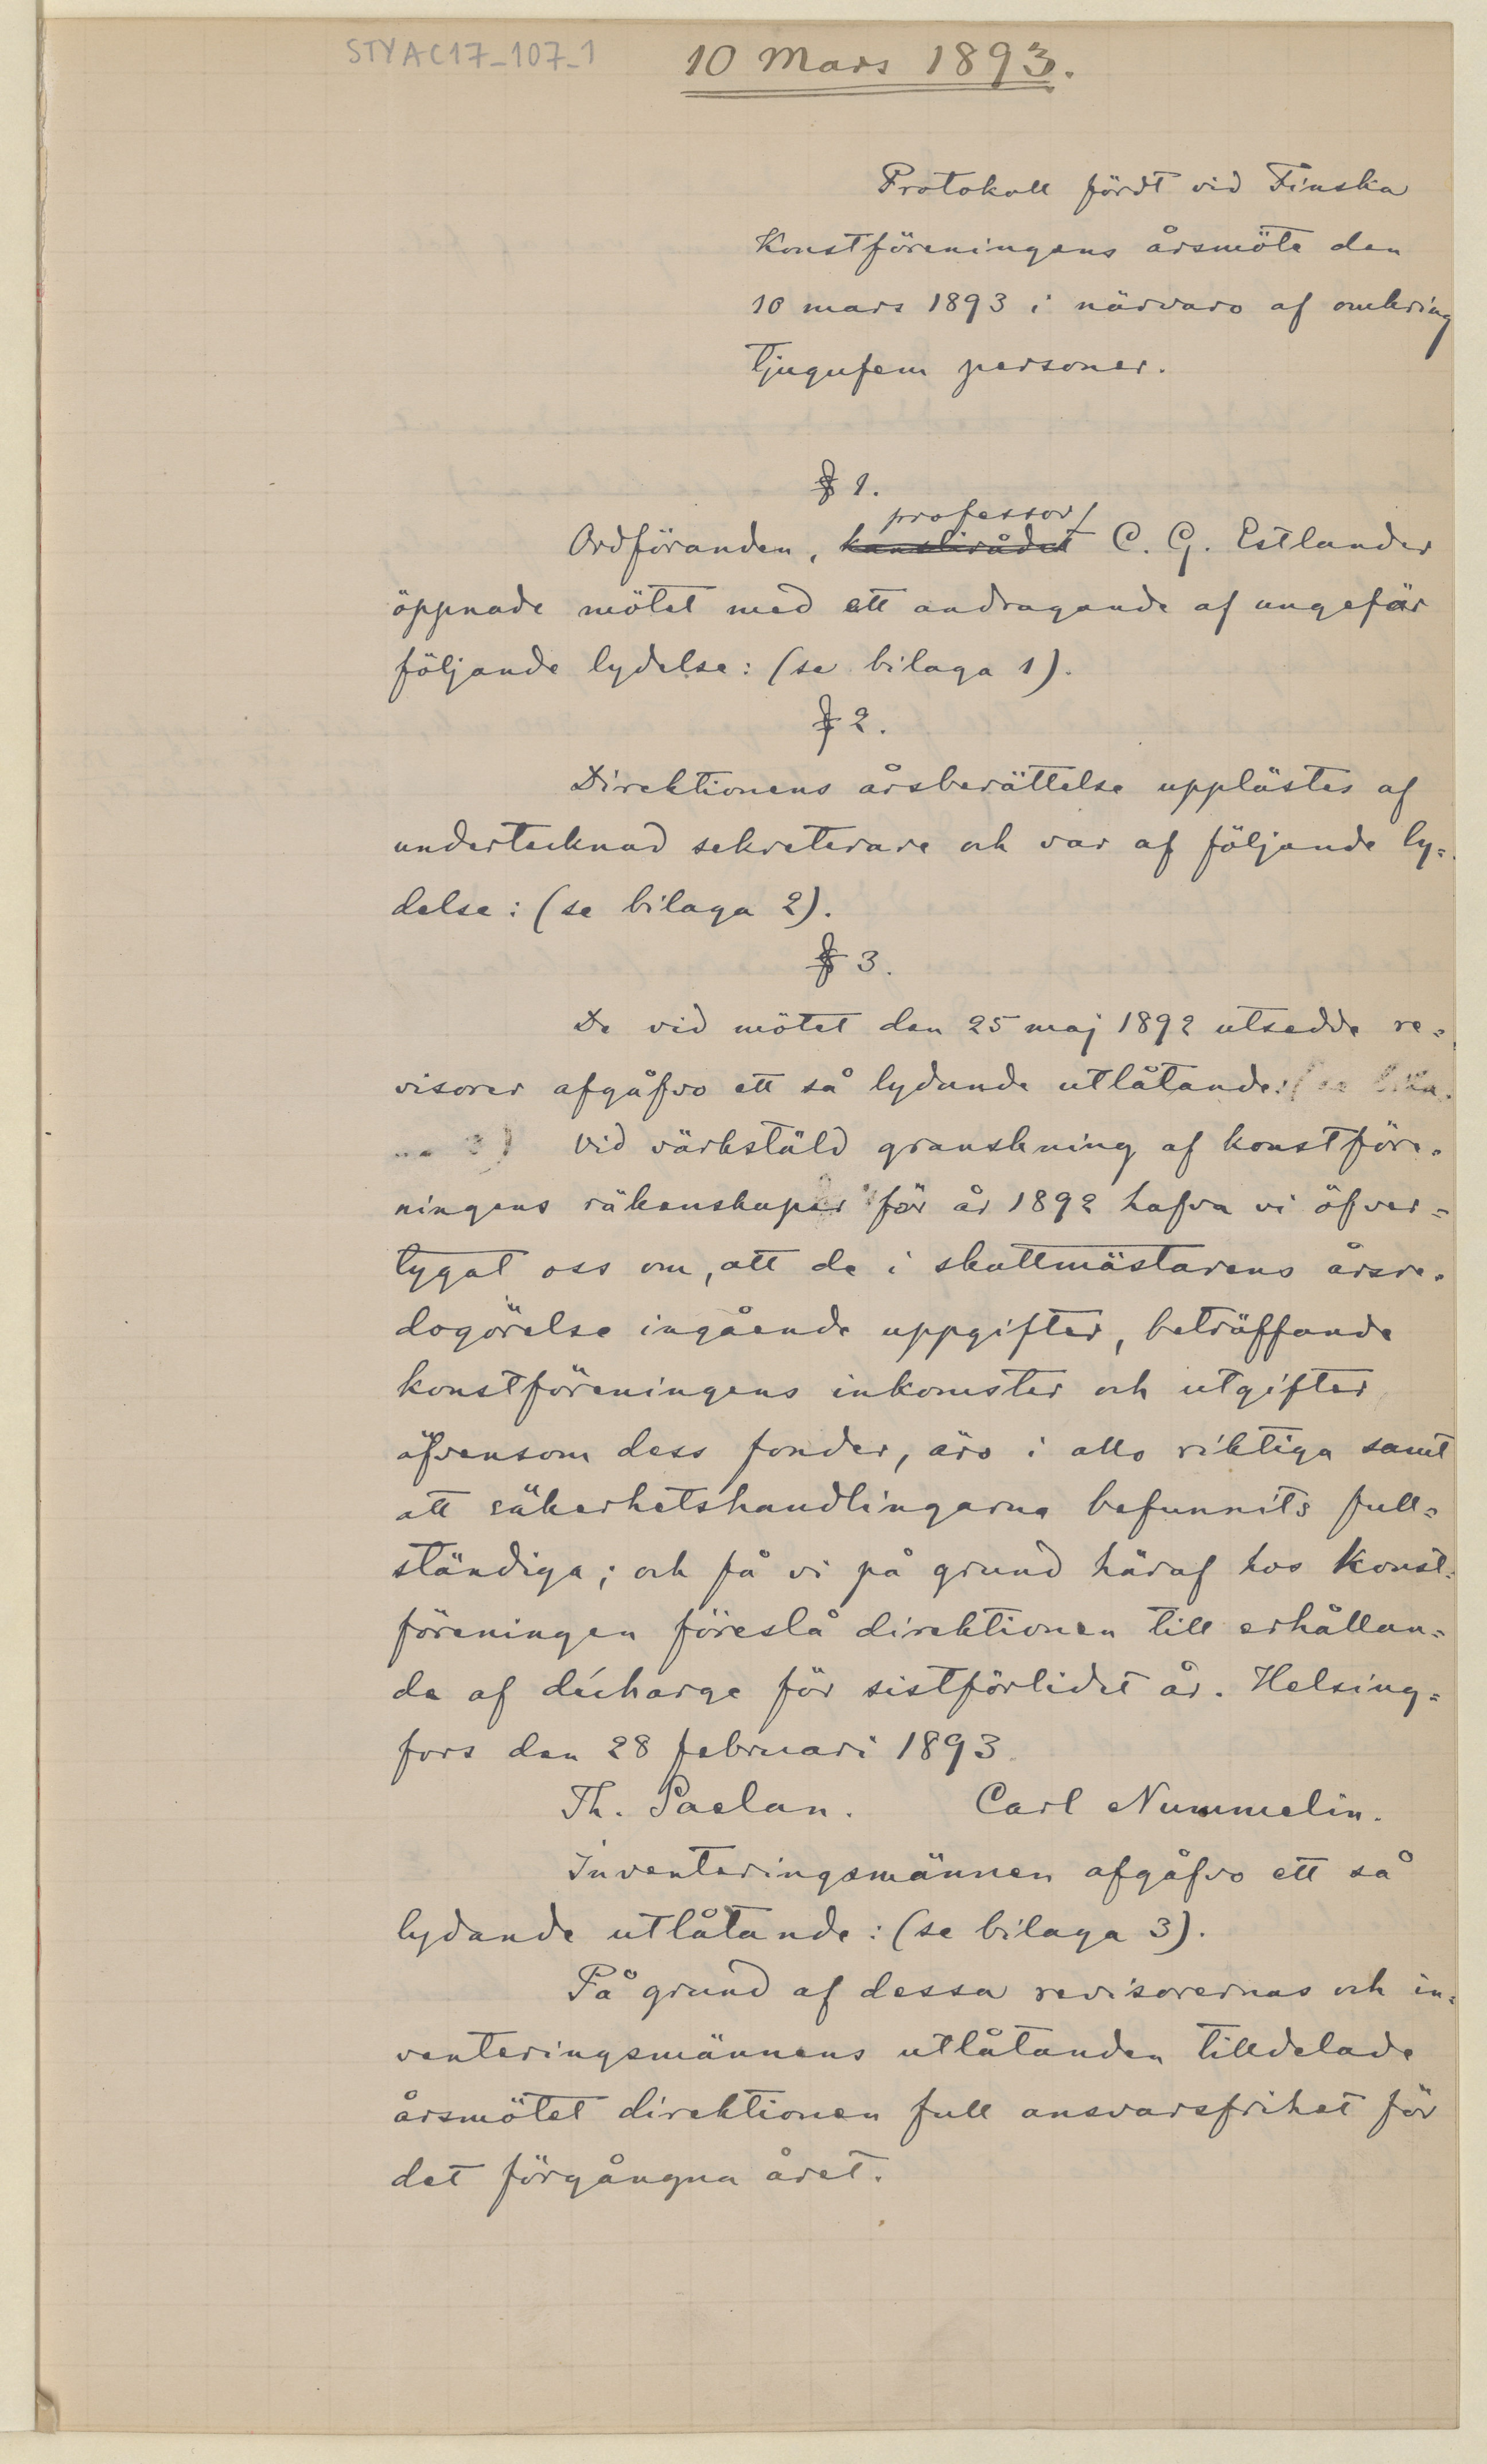 STYAC17_107_1
10 Mars 1893.
Protokoll fördt vid Finska
Konstföreningens årsmöte den
10 mars 1893 i närvaro af omkring
tjugufem personer.
§ 1.
professor
Ordföranden, kanslirådet C. G. Estlander
öppnade mötet med ett andragande af ungefär
följande lydelse: (se bilaga 1).
§ 2.
Direktionens årsberättelse upplästes af
undertecknad sekreterare och var af följande ly=
delse: (se bilaga 2).
§ 3.
De vid mötet den 25 maj 1892 utsedde re=
visorer afgåfvo ett så lydande utlåtande: (se
3) Vid värkstäld granskning af konstföre=
ningens räkenskaper för år 1892 hafva vi öfver=
tygat oss om, att de i skattmästarens årsre=
dogörelse ingående uppgifter, beträffande
konstföreningens inkomster och utgifter
äfvensom dess fonder, äro i allo riktiga samt
att säkerhetshandlingarna befunnits full=
ständiga; och få vi på grund häraf hos Konst=
föreningen föreslå direktionen till erhållan=
de af décharge för sistförlidet år. Helsing=
fors den 28 februari 1893.
Th. Saelan. Carl Nummelin.
Inventeringsmännen afgåfvo ett så
lydande utlåtande: (se bilaga 3).
På grund af dessa revisorernas och in=
venteringsmännens utlåtanden tilldelade
årsmötet direktionen full ansvarsfrihet för
det förgångna året.